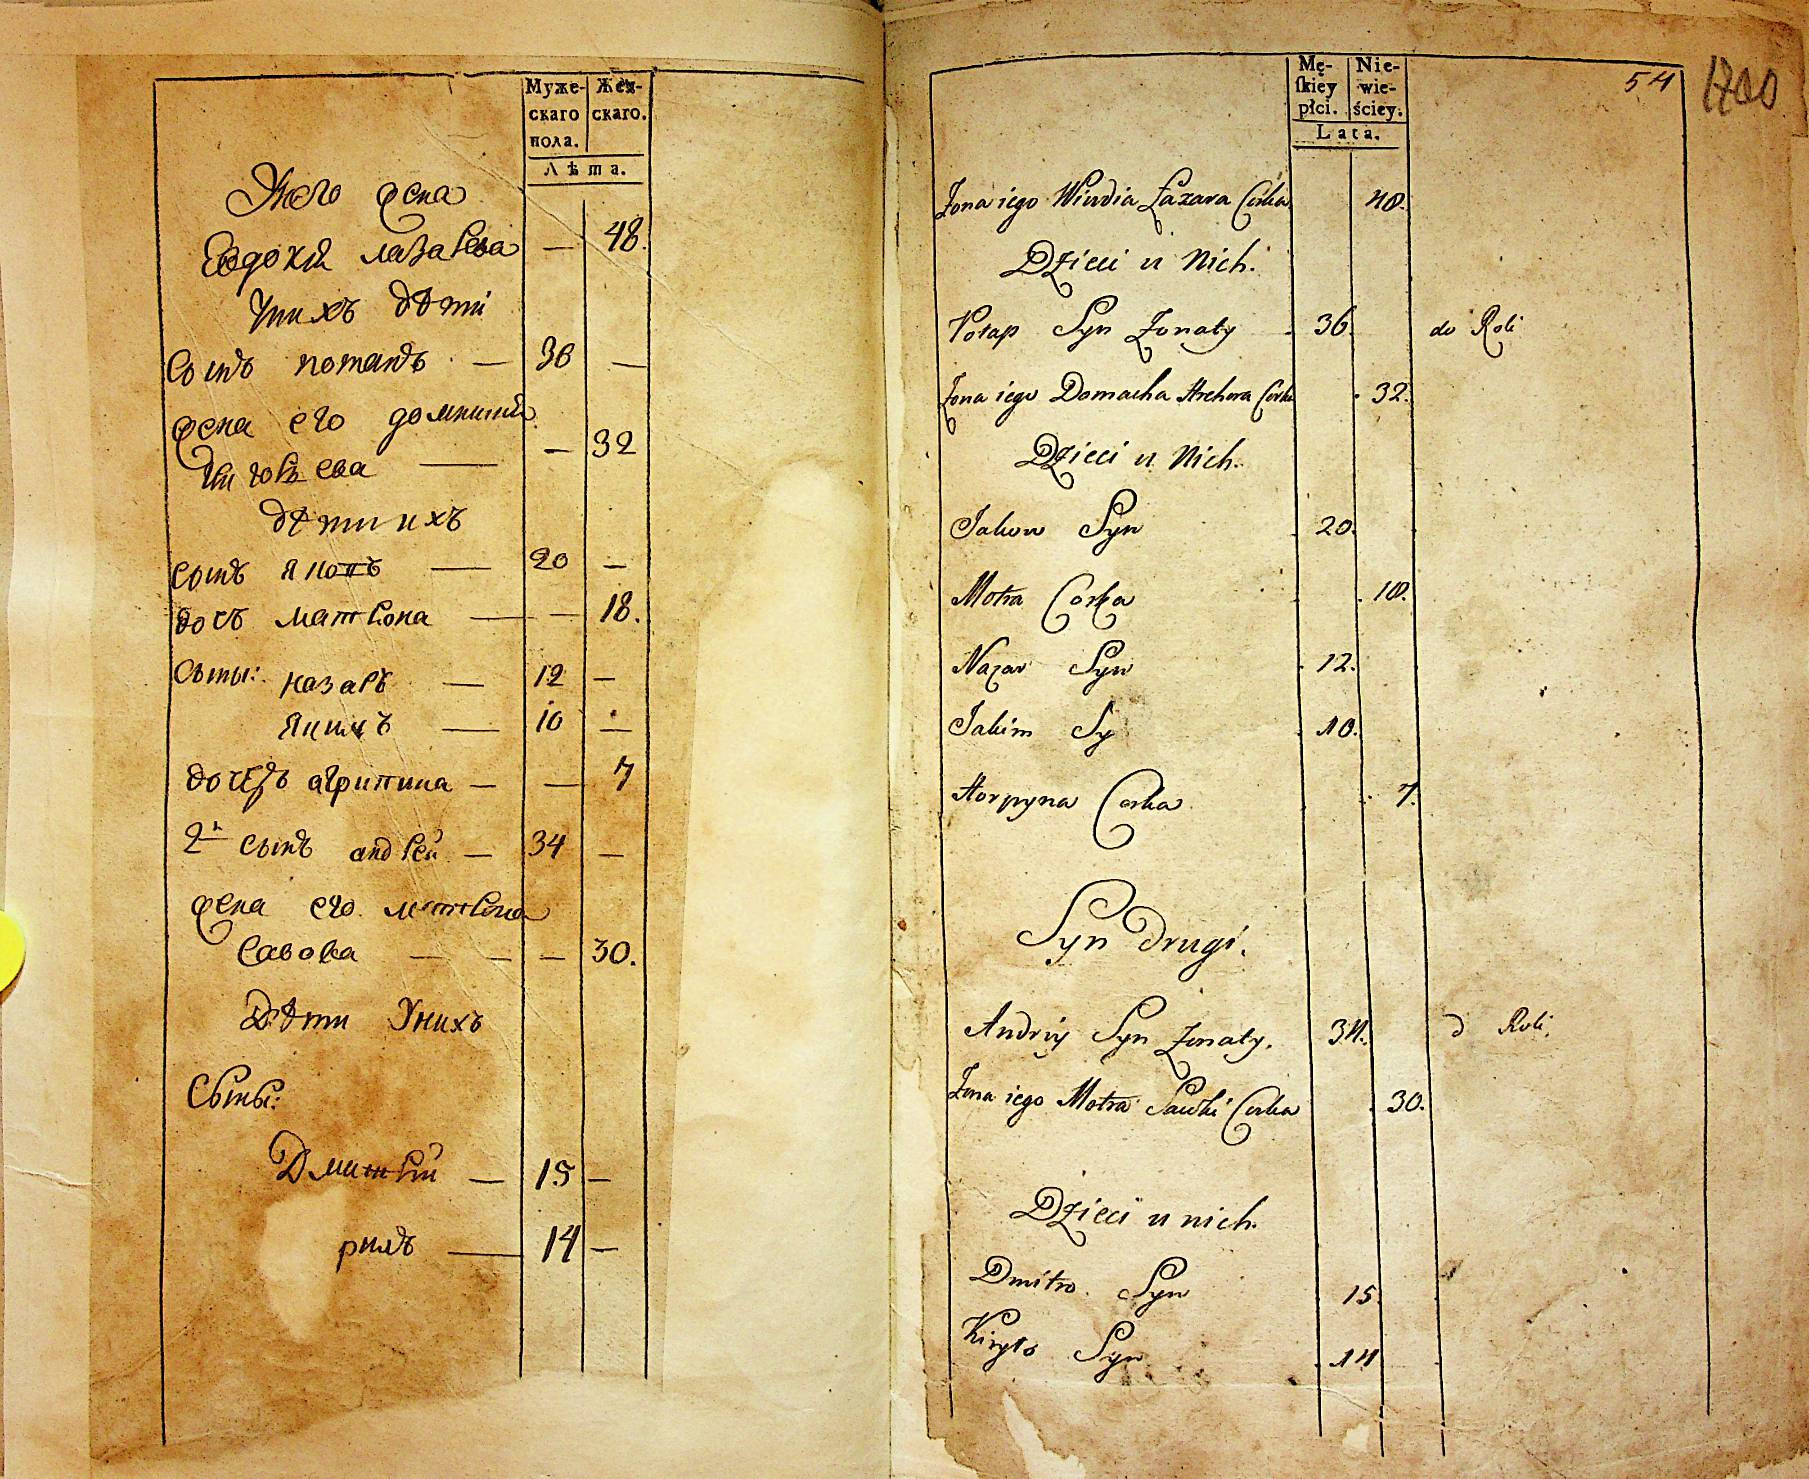 Муже-
скаго
пола.
Жен-
скаго.
Лѣта.
Жена
Евдокія лазарева — 48.
Унихъ дѣти
Сынъ потапъ — 36 —
жена его домникия
— 32
дѣти ихъ
сынъ яковъ — 20 —
дочъ матрона — — 18.
Сыны: назаръ — 12 —
якимъ — 10 —
дочеръ агрипина — — 7
2й сынъ андрей — 34 —
жена его матрона
Савова — — — 30.
Дѣти Унихъ
Сыны:
Дмитрій — 15 —
рилъ — 14 —
Mę-
skiey
płci.
Nie-
wie-
ściey.
Lata.
54
1700
Żona iego Wiwdia Łazara Corka 48.
Dzieci u Nich.
Potap Syn Żonaty 36. do Roli
Żona iego Domacha Corka 32.
Dzieci u Nich.
Jakow Syn 20.
Motra Corka 18.
Nazar Syn 12.
Jakim Sy 10.
Horpyna Corka 7.
Syn drugi.
Andriy Syn Żonaty. 34. d Roli.
Żona iego Motra Sawki Corka 30.
Dzieci u nich.
Dmitro Syn 15.
Kiryło Syn 14